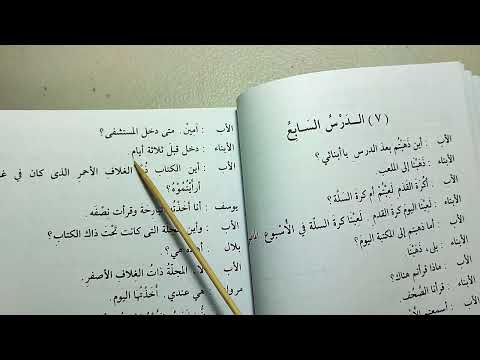 (٧) الــدَرْسُ السَابعُ
الأب : أين ذَهَبْتُم بعدَ الدرس يا أبنائي؟
الأبناء : ذَهَبْنا إلى الملعب.
الأب : أكُرَةَ القدَم لَعِبْتُم أم كرةَ السلّة؟
الأبناء : لَعِبْنا اليومَ كرةَ القدم. لَعِبْنا كرةَ السلّة في الأُسْبُوع
الأب : أما ذهبتم إلى المكتبة اليومَ؟
الأبناء : بلى، ذَهَبْنا
الأب : ماذا قرأتم هناك؟
الأبناء : قرأنا الصُّحُفَ.
الأب :
الأب : آمِيْنَ. متى دخل المستشفى؟
الأبناء : دخل قبلَ ثلاثة أيام.
الأب : أين الكتاب الغلافِ الأحمر الذى كان في
أرأيْتُمُوْهُ؟
يوسف : أنا أخَذْتُه البارحةَ وقرأت نِصْفَه.
الأب : وأين التى كانت تَحْتَ ذاك الكتابِ؟
بلال : هي؟
الأب : لا، المجلّةُ ذاتُ الغلافِ الأصفر.
مروان : هي عندي. أخَذْتُها اليومَ.